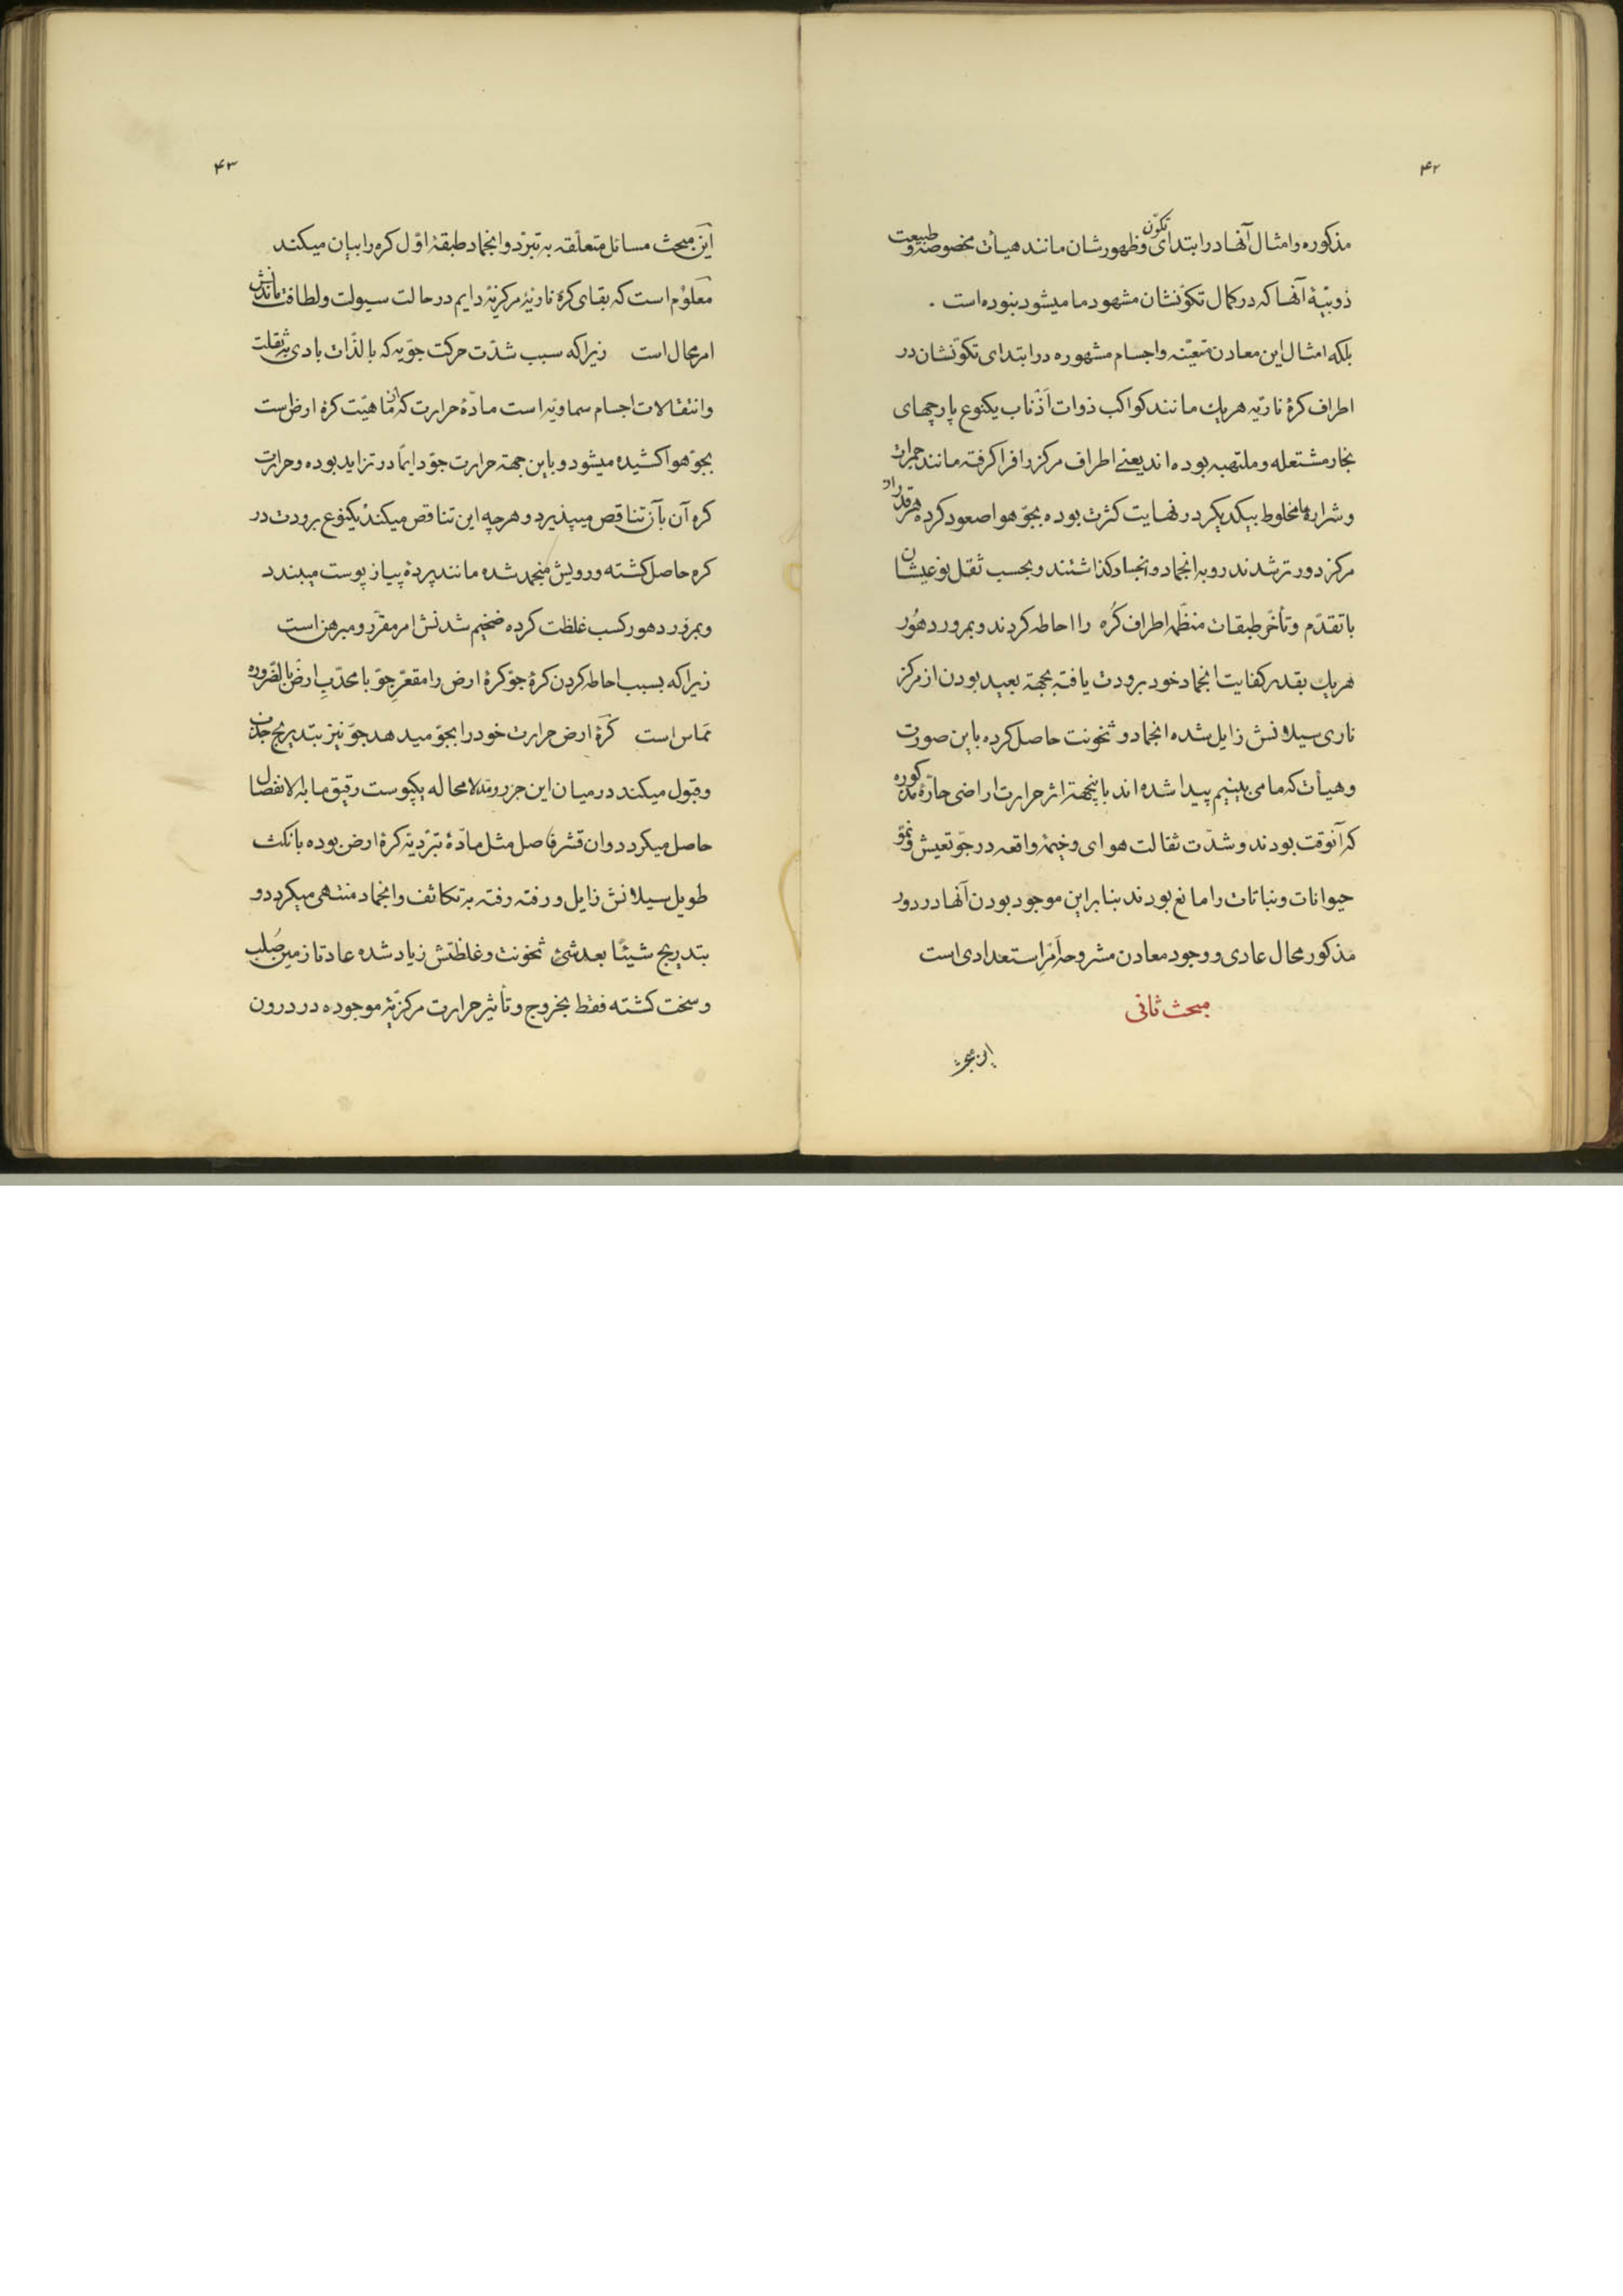 ۴۲
مذکوره و امثال آنها در ابتدای تکوّن و ظهورشان مانند هیأت مخصوصه و طبیعت
ذوبیّهٔ آنها که در کمال تکوّنشان مشهود ما میشود نبوده است .
بلکه امثال این معادن متعیّنه و اجسام مشهوره در ابتدای تکوّنشان در
اطراف کرهٔ ناریّه هریك مانند کواکب ذوات اَذْناب یکنوع پارچهای
بخار مشتعله و ملتهبه بوده اند یعنے اطراف مرکز را فرا کرفته مانند جمرات
و شرارها مخلوط بیکدیکر در نهایت کثرت بوده بجوّ هوا صعود کرده هرقدر از
مرکز دورتر شدند رو به انجماد و انجساد کذاشتند و بحسب ثقل نوعیشان
با تقدّم و تأخّر طبقات منظّمه اطراف کُره را احاطه کردند و بمرور دهُور
هریك بقدر کفایت انجماد خود برودت یافته بجهة بعید بودن از مرکز
ناری سیلانش زایل شده انجماد و ثخونت حاصل کرده باین صورت
و هیأت که ما می بینیم پیدا شده اند باینجهة اثر حرارت اراضی حارّهٔ مذکوره
که آنوقت بودند و شدّت ثقالت هوای وخیمهٔ واقعه در جوّ تعیش و نموّ
حیوانات و نباتات را مانع بودند بنابراین موجود بودن آنها در دور
مذکور محال عادی و وجود معادن مشروحه اَمْرِ استعدادی است
مبحث ثانی
این مبحث
۴۳
این مبحث مسائل متعلّقه به تبرّد و انجماد طبقهٔ اوّل کره را بیان میکند
معلوْم است که بقای کرهٔ ناریّهٔ مرکزیّه دایم در حالت سیولت و لطافت ماندنش
امر محال است زیرا که سبب شدّت حرکت جوّیه که بالذّات بادی بثقلت
و انتقالات اجسام سماویّه است مادّهٔ حرارت که از ماهیّت کرهٔ ارض است
بجوّ هوا کشیده میشود و باین جهة حرارت جوّ دایماً در تزاید بوده و حرارت
کره آن بآن تناقص میپذیرد و هرچه این تناقص میکند یکنوع برودت در
کره حاصل کشته و رویش منجمد شده مانند پردهٔ پیاز پوست میبندد
و بمرور دهور کسب غلظت کرده ضخیم شدنش امر مقرّر و مبرهن است
زیرا که بسبب احاطه کردن کرهٔ جوّ کرهٔ ارض را مقعّرِ جوّ با محدّبِ ارض بالضّروره
تماس است کرهٔ ارض حرارت خود را بجوّ میدهد جوّ نیز بتدریج جذب
و قبول میکند در میان این جزر و مدّ لامحاله یکپوست رقیق ما به الانفصال
حاصل میکردد و ان قشر فاصل مثل مادّهٔ تبرّدیّه کرهٔ ارض بوده بانکث
طویل سیلانش زایل و رفته رفته به تکاثف و انجماد منتهی میکردد و
بتدریج شیئًا بعد شئ ثخونت و غلظتش زیاد شده عادتا زمین صُلب
و سخت کشته فقط بخروج و تأثیر حرارت مرکزیّهٔ موجوده در درون